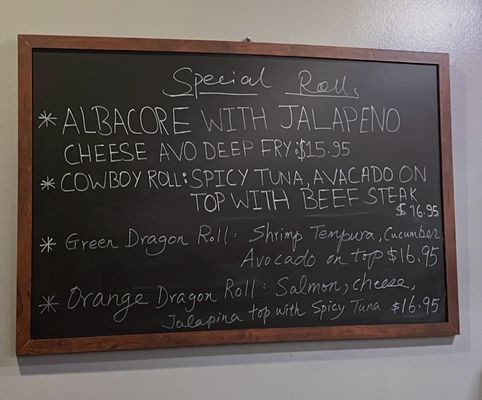 Special Rolls
* ALBACORE WITH JALAPENO
CHEESE AVO DEEP FRY:$15.95
* COWBOY ROLL: SPICY TUNA, AVACADO ON
TOP WITH BEEF STEAK
$16.95
* Green Dragon Roll: Shrimp Tempura, Cucumber
Avocado on top $16.95
* Orange Dragon Roll: Salmon, cheese,
Jalapina top with Spicy Tuna $16.95